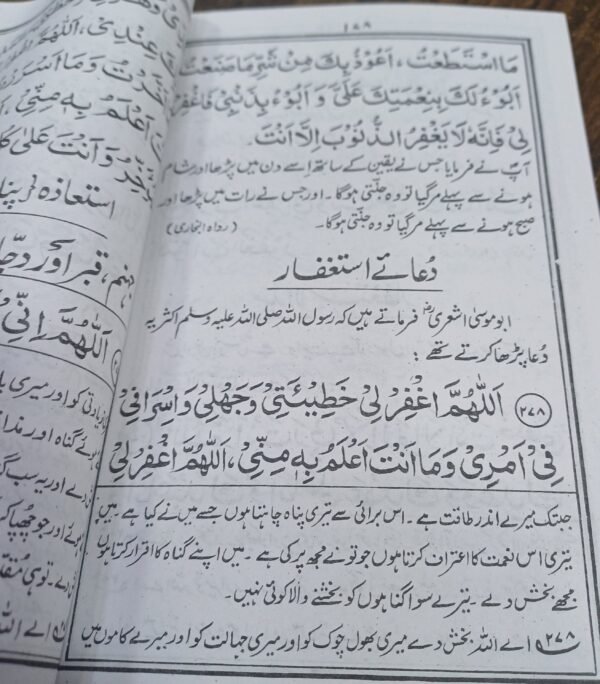 ۱۷۹
مَا اسْتَطَعْتُ، اَعُوْذُ بِكَ مِنْ شَرِّ مَا صَنَعْتُ
اَبُوْءُ لَكَ بِنِعْمَتِكَ عَلَىَّ وَ اَبُوْءُ بِذَنْۢبِىْ فَاغْفِرْ
لِىْ فَاِنَّهٗ لَا يَغْفِرُ الذُّنُوْبَ اِلَّا اَنْتَ۔
آپؐ نے فرمایا جس نے یقین کے ساتھ اسے دن میں پڑھا اور شام
ہونے سے پہلے مر گیا تو وہ جنتی ہوگا۔ اور جس نے رات میں پڑھا اور
صبح ہونے سے پہلے مر گیا تو وہ جنتی ہوگا۔ (رواہ البخاری)
دُعائے استغفار
ابو موسیٰ اشعریؓ فرماتے ہیں کہ رسول اللہ صلی اللہ علیہ وسلم اکثر یہ
دُعا پڑھا کرتے تھے :
(۲۷۸) اَللّٰهُمَّ اغْفِرْ لِىْ خَطِيْئَتِىْ وَجَهْلِىْ وَاِسْرَافِىْ
فِىْ اَمْرِىْ وَمَا اَنْتَ اَعْلَمُ بِهٖ مِنِّىْ، اَللّٰهُمَّ اغْفِرْ لِىْ
جب تک میرے اندر طاقت ہے۔ اس برائی سے تیری پناہ چاہتا ہوں جسے میں نے کیا ہے۔ میں
تیری اس نعمت کا اعتراف کرتا ہوں جو تو نے مجھ پر کی ہے۔ میں اپنے گناہ کا اقرار کرتا ہوں
مجھے بخش دے۔ تیرے سوا گناہوں کو بخشنے والا کوئی نہیں۔
۲۷۸ اے اللہ بخش دے میری بھول چوک کو اور میری جہالت کو اور میرے کاموں میں
عِنْدِىْ، اَللّٰهُمَّ
وَمَا اَسْرَرْ
اَعْلَمُ بِهٖ مِنِّىْ،
وَاَنْتَ عَلٰى
استعاذہ
جہنم، قبر اور دجا
اَللّٰهُمَّ اِنِّىْ
کو اور میری
گناہ اور
اور یہ سب
اور جو چھپا
تو ہی
اے اللہ